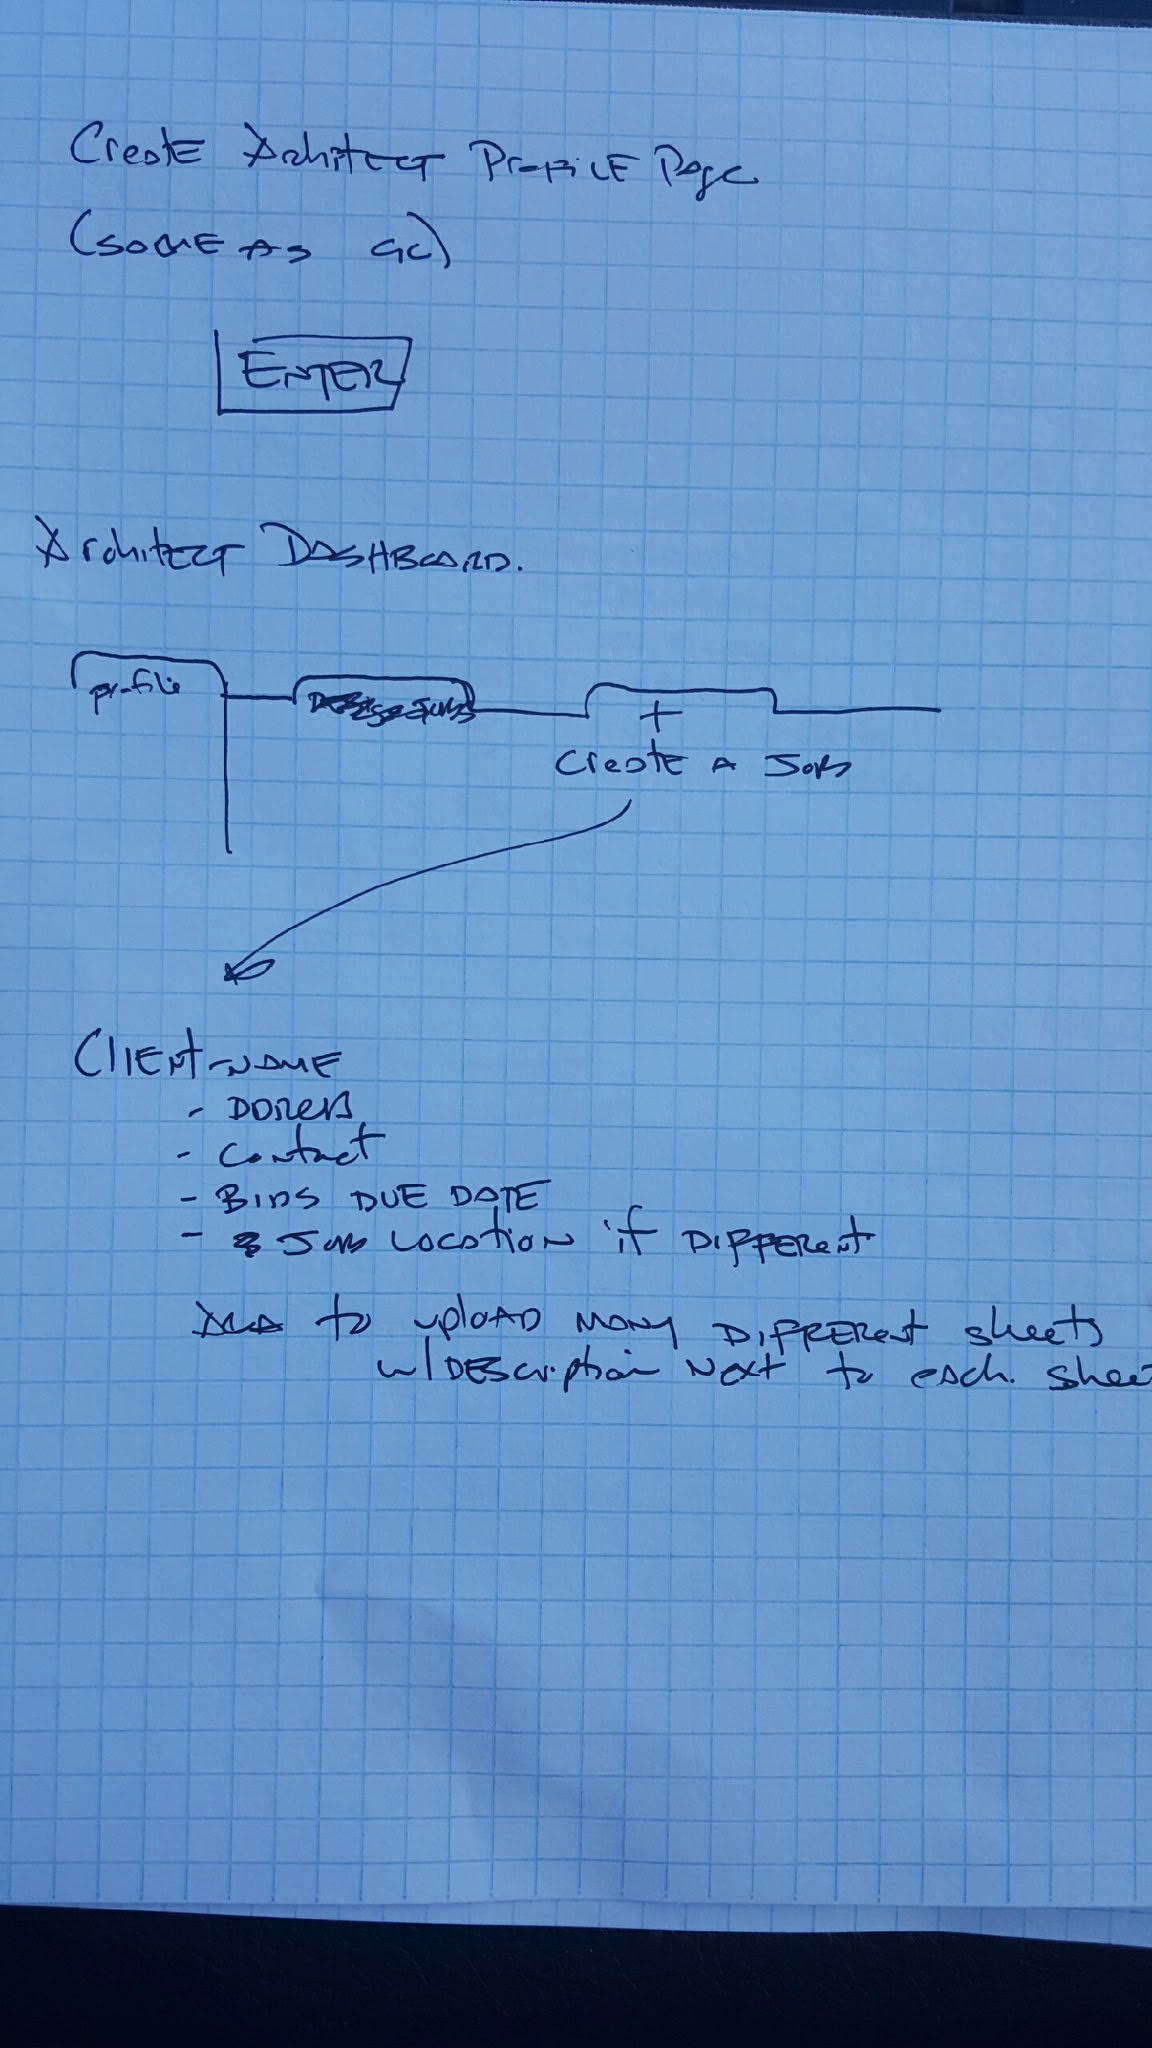 Create Architect Profile Page
(SAME AS GC)
ENTER
Architect DASHBOARD.
profile
+
Create A JOB
CLIENT NAME
- Contact
- BIDS DUE DATE
- JOB LOCATION if DIFFERENT
to upload MANY DIFFERENT sheets
w/ DEscription Next to each sheet